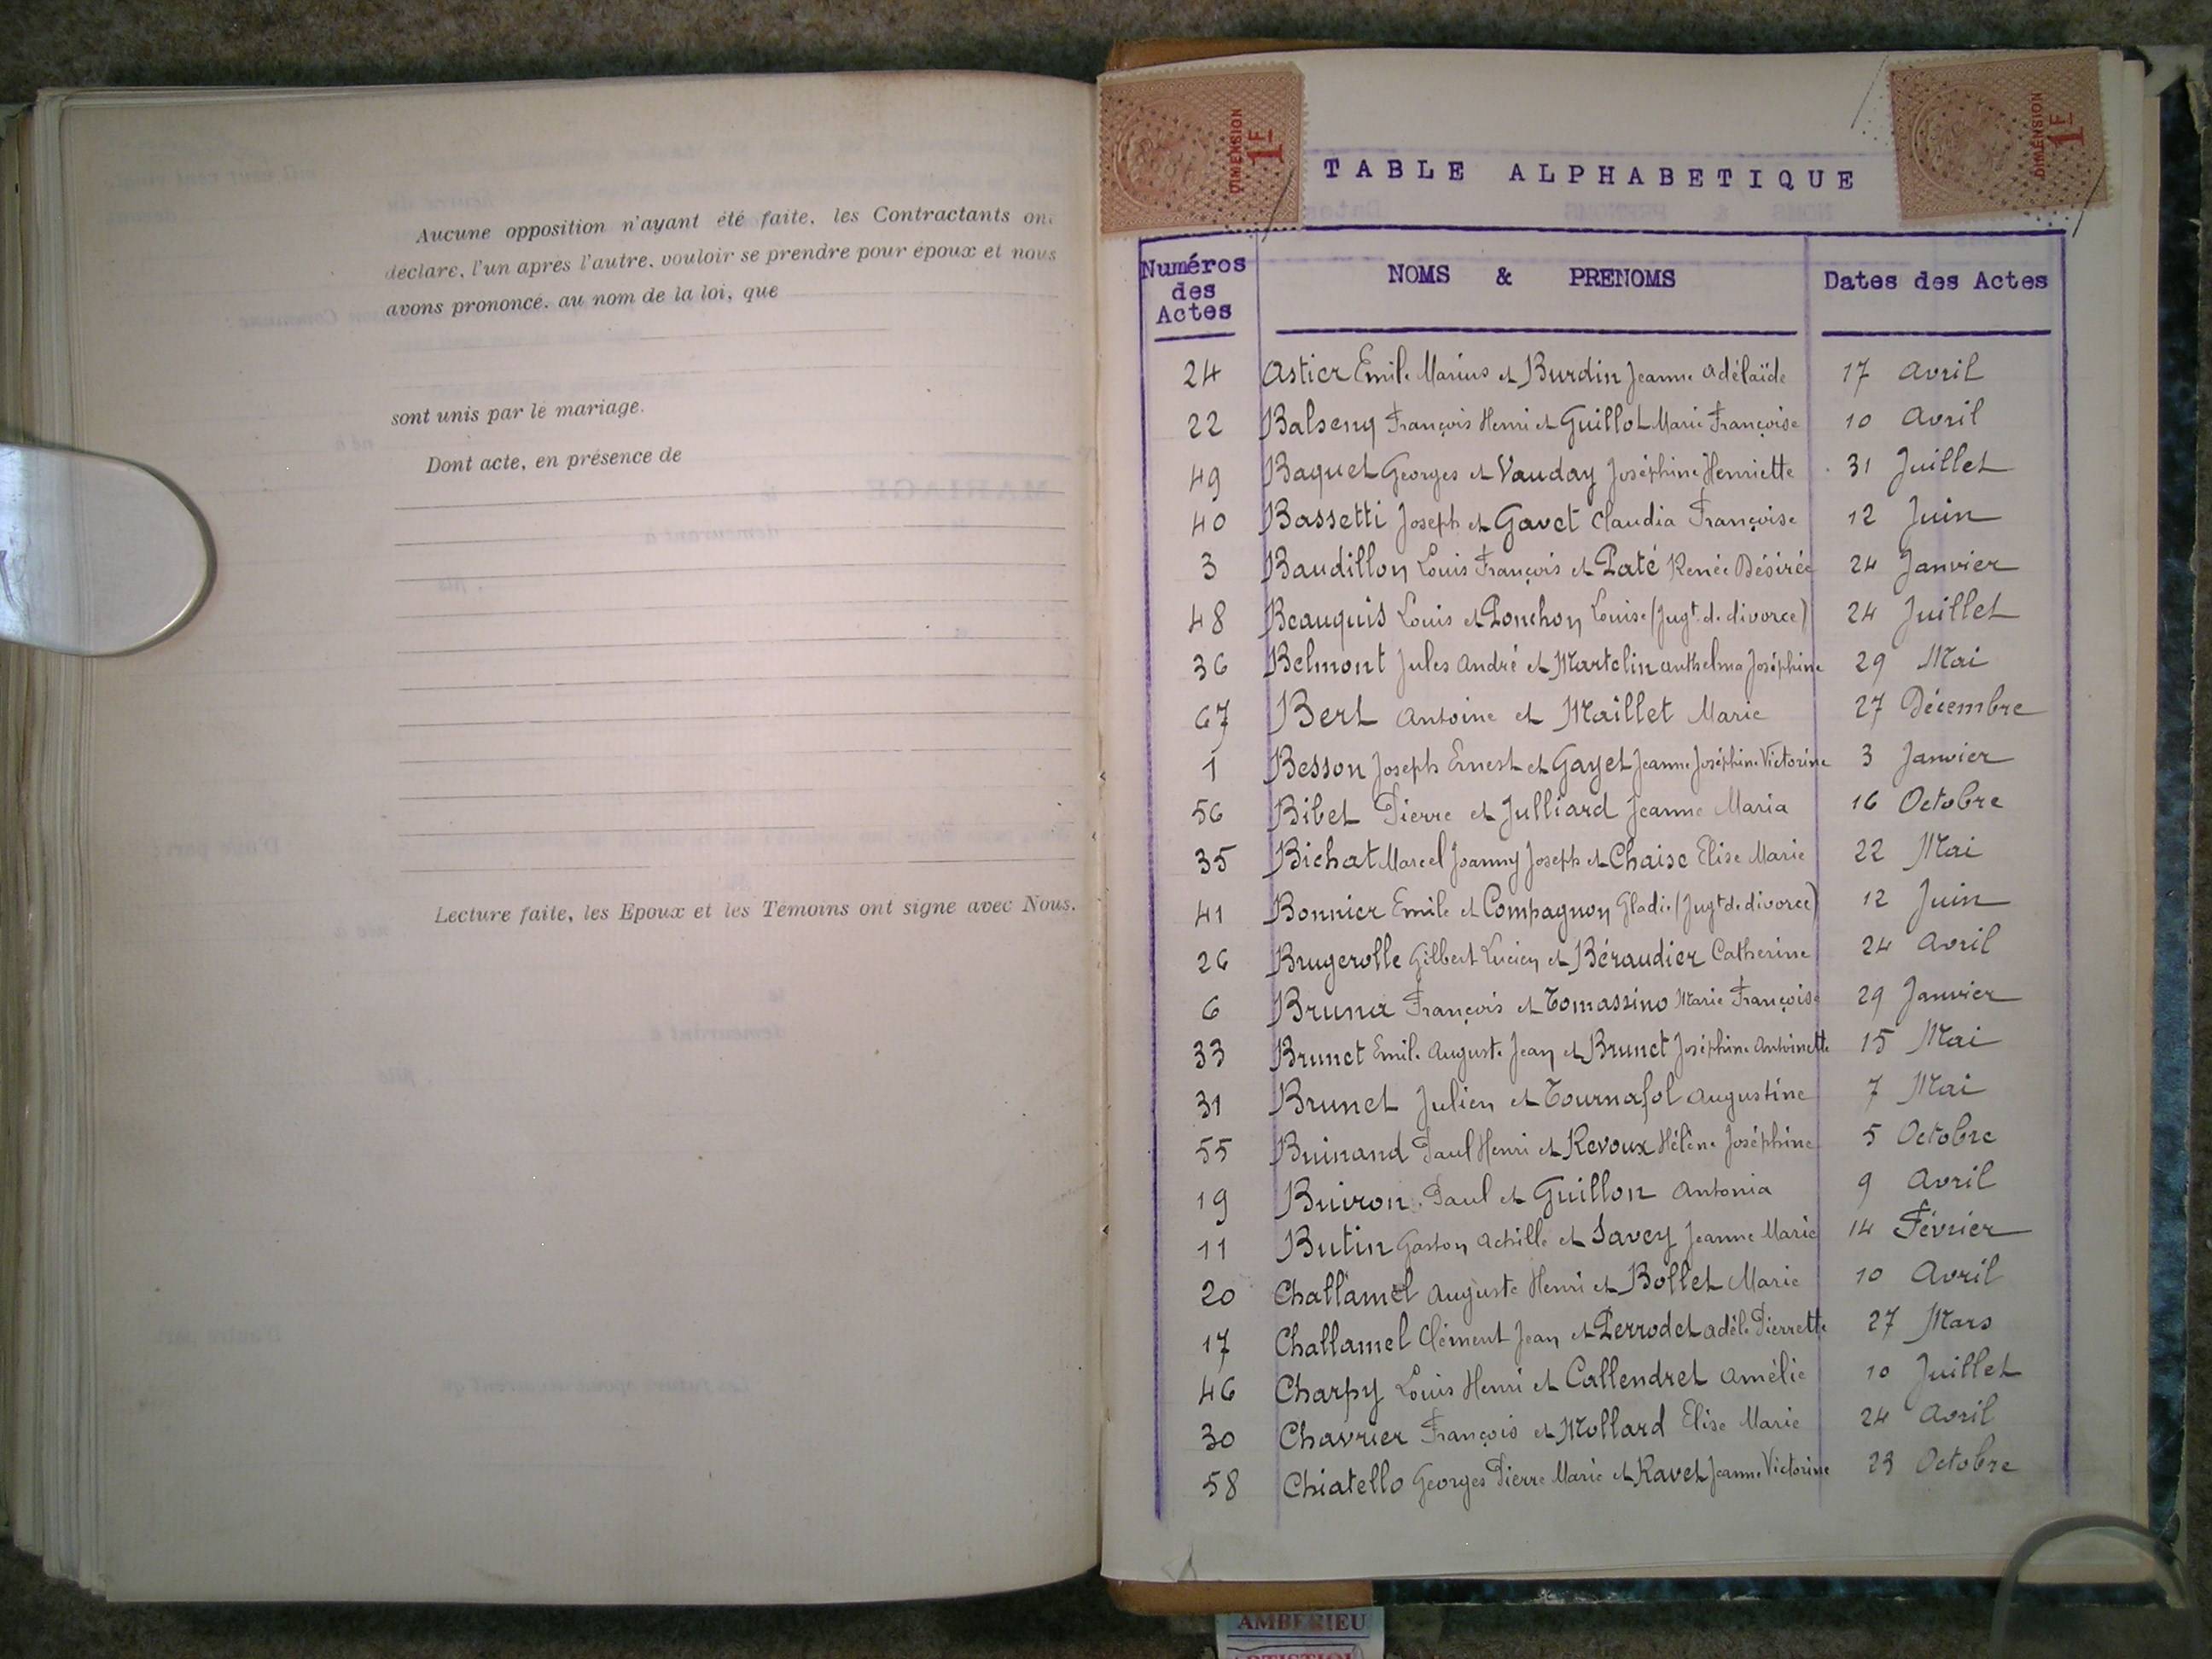 Aucune opposition n'ayant été faite, les Contractants ont
déclaré, l'un après l'autre, vouloir se prendre pour époux et nous
avons prononcé, au nom de la loi, que
sont unis par le mariage.
Dont acte, en présence de
Lecture faite, les Epoux et les Témoins ont signé avec Nous.
DIMENSION 1F
DIMENSION 1F
TABLE ALPHABETIQUE
Numéros des Actes NOMS & PRENOMS Dates des Actes
24 Astier Emile Marius et Burdin Jeanne Adélaïde 17 Avril
22 Balseny François Henri et Guillot Marie Françoise 10 Avril
49 Baquet Georges et Vauday Joséphine Henriette 31 Juillet
40 Bassetti Joseph et Gavet Claudia Françoise 12 Juin
3 Baudillon Louis François et Paté Renée Désirée 24 Janvier
48 Beauquis Louis et Ponchon Louise (Jugt de divorce) 24 Juillet
36 Belmont Jules André et Martelin Anthelma Joséphine 29 Mai
67 Bert Antoine et Maillet Marie 27 Décembre
1 Besson Joseph Ernest et Gayet Jeanne Joséphine Victorine 3 Janvier
56 Bibet Pierre et Julliard Jeanne Maria 16 Octobre
35 Bichat Marcel Joanny Joseph et Chaise Elise Marie 22 Mai
41 Bonnier Emile et Compagnon Gladie (Jugt de divorce) 12 Juin
26 Brugerolle Gilbert Lucien et Béraudier Catherine 24 Avril
6 Bruna François et Tomassino Marie Françoise 29 Janvier
33 Brunet Emile Auguste Jean et Brunet Joséphine Antoinette 15 Mai
31 Brunet Julien et Tournafol Augustine 7 Mai
55 Buinand Paul Henri et Revoux Hélène Joséphine 5 Octobre
19 Buiron Paul et Guillon Antonia 9 Avril
11 Butin Gaston Achille et Savey Jeanne Marie 14 Février
20 Challamel Auguste Henri et Bollet Marie 10 Avril
17 Challamel Clément Jean et Perrodet Adèle Pierrette 27 Mars
46 Charpy Louis Henri et Callendret Amélie 10 Juillet
30 Chavrier François et Mollard Elise Marie 24 Avril
58 Chiatello Georges Pierre Marie et Ravet Jeanne Victorine 23 Octobre
AMBERIEU